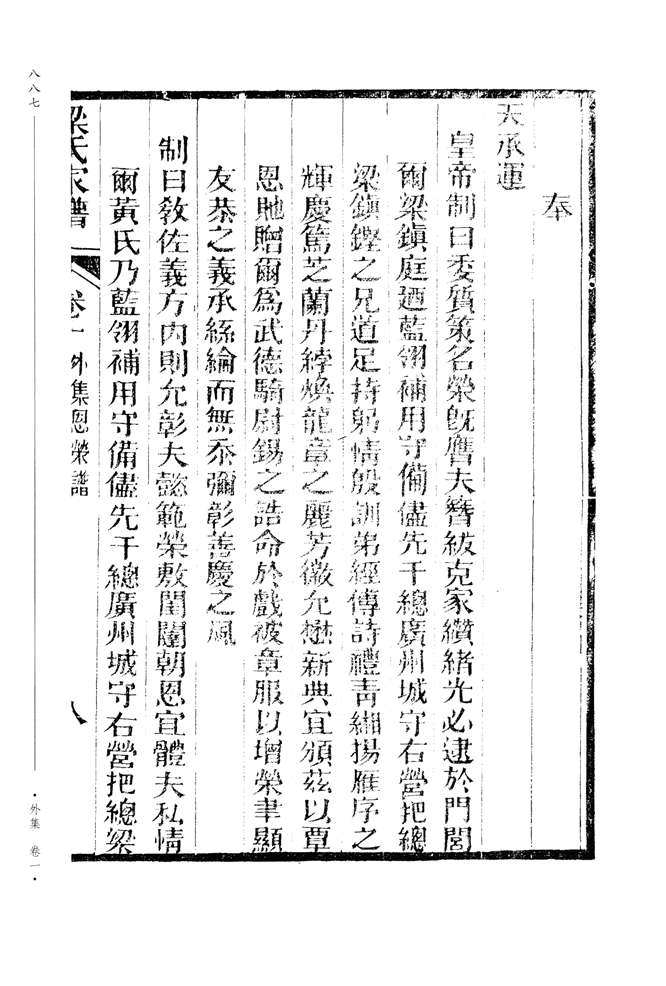 奉
天承運
皇帝制曰委質策名榮旣膺夫簪紱克家纘緒光必逮於門閭
爾梁鎭庭迺藍翎補用守備儘先千總廣州城守右營把總
梁鎭鏗之兄道足持躬情殷訓弟經傳詩禮靑緗揚雁序之
輝慶篤芝蘭丹綍煥龍章之麗芳徽允懋新典宜頒茲以覃
恩貤贈爾爲武德騎尉錫之誥命於戲被章服以增榮聿顯
友恭之義承絲綸而無忝彌彰善慶之風
制曰敎佐義方內則允彰夫懿範榮敷閨闥朝恩宜體夫私情
爾黃氏乃藍翎補用守備儘先千總廣州城守右營把總梁
梁氏家譜 卷一 外集恩榮譜 八
八八七
·外集 卷一·